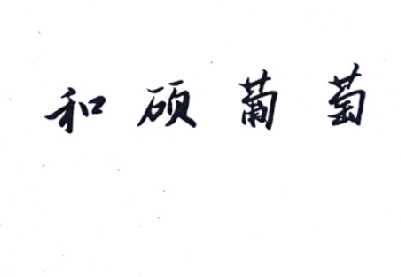 和硕葡萄